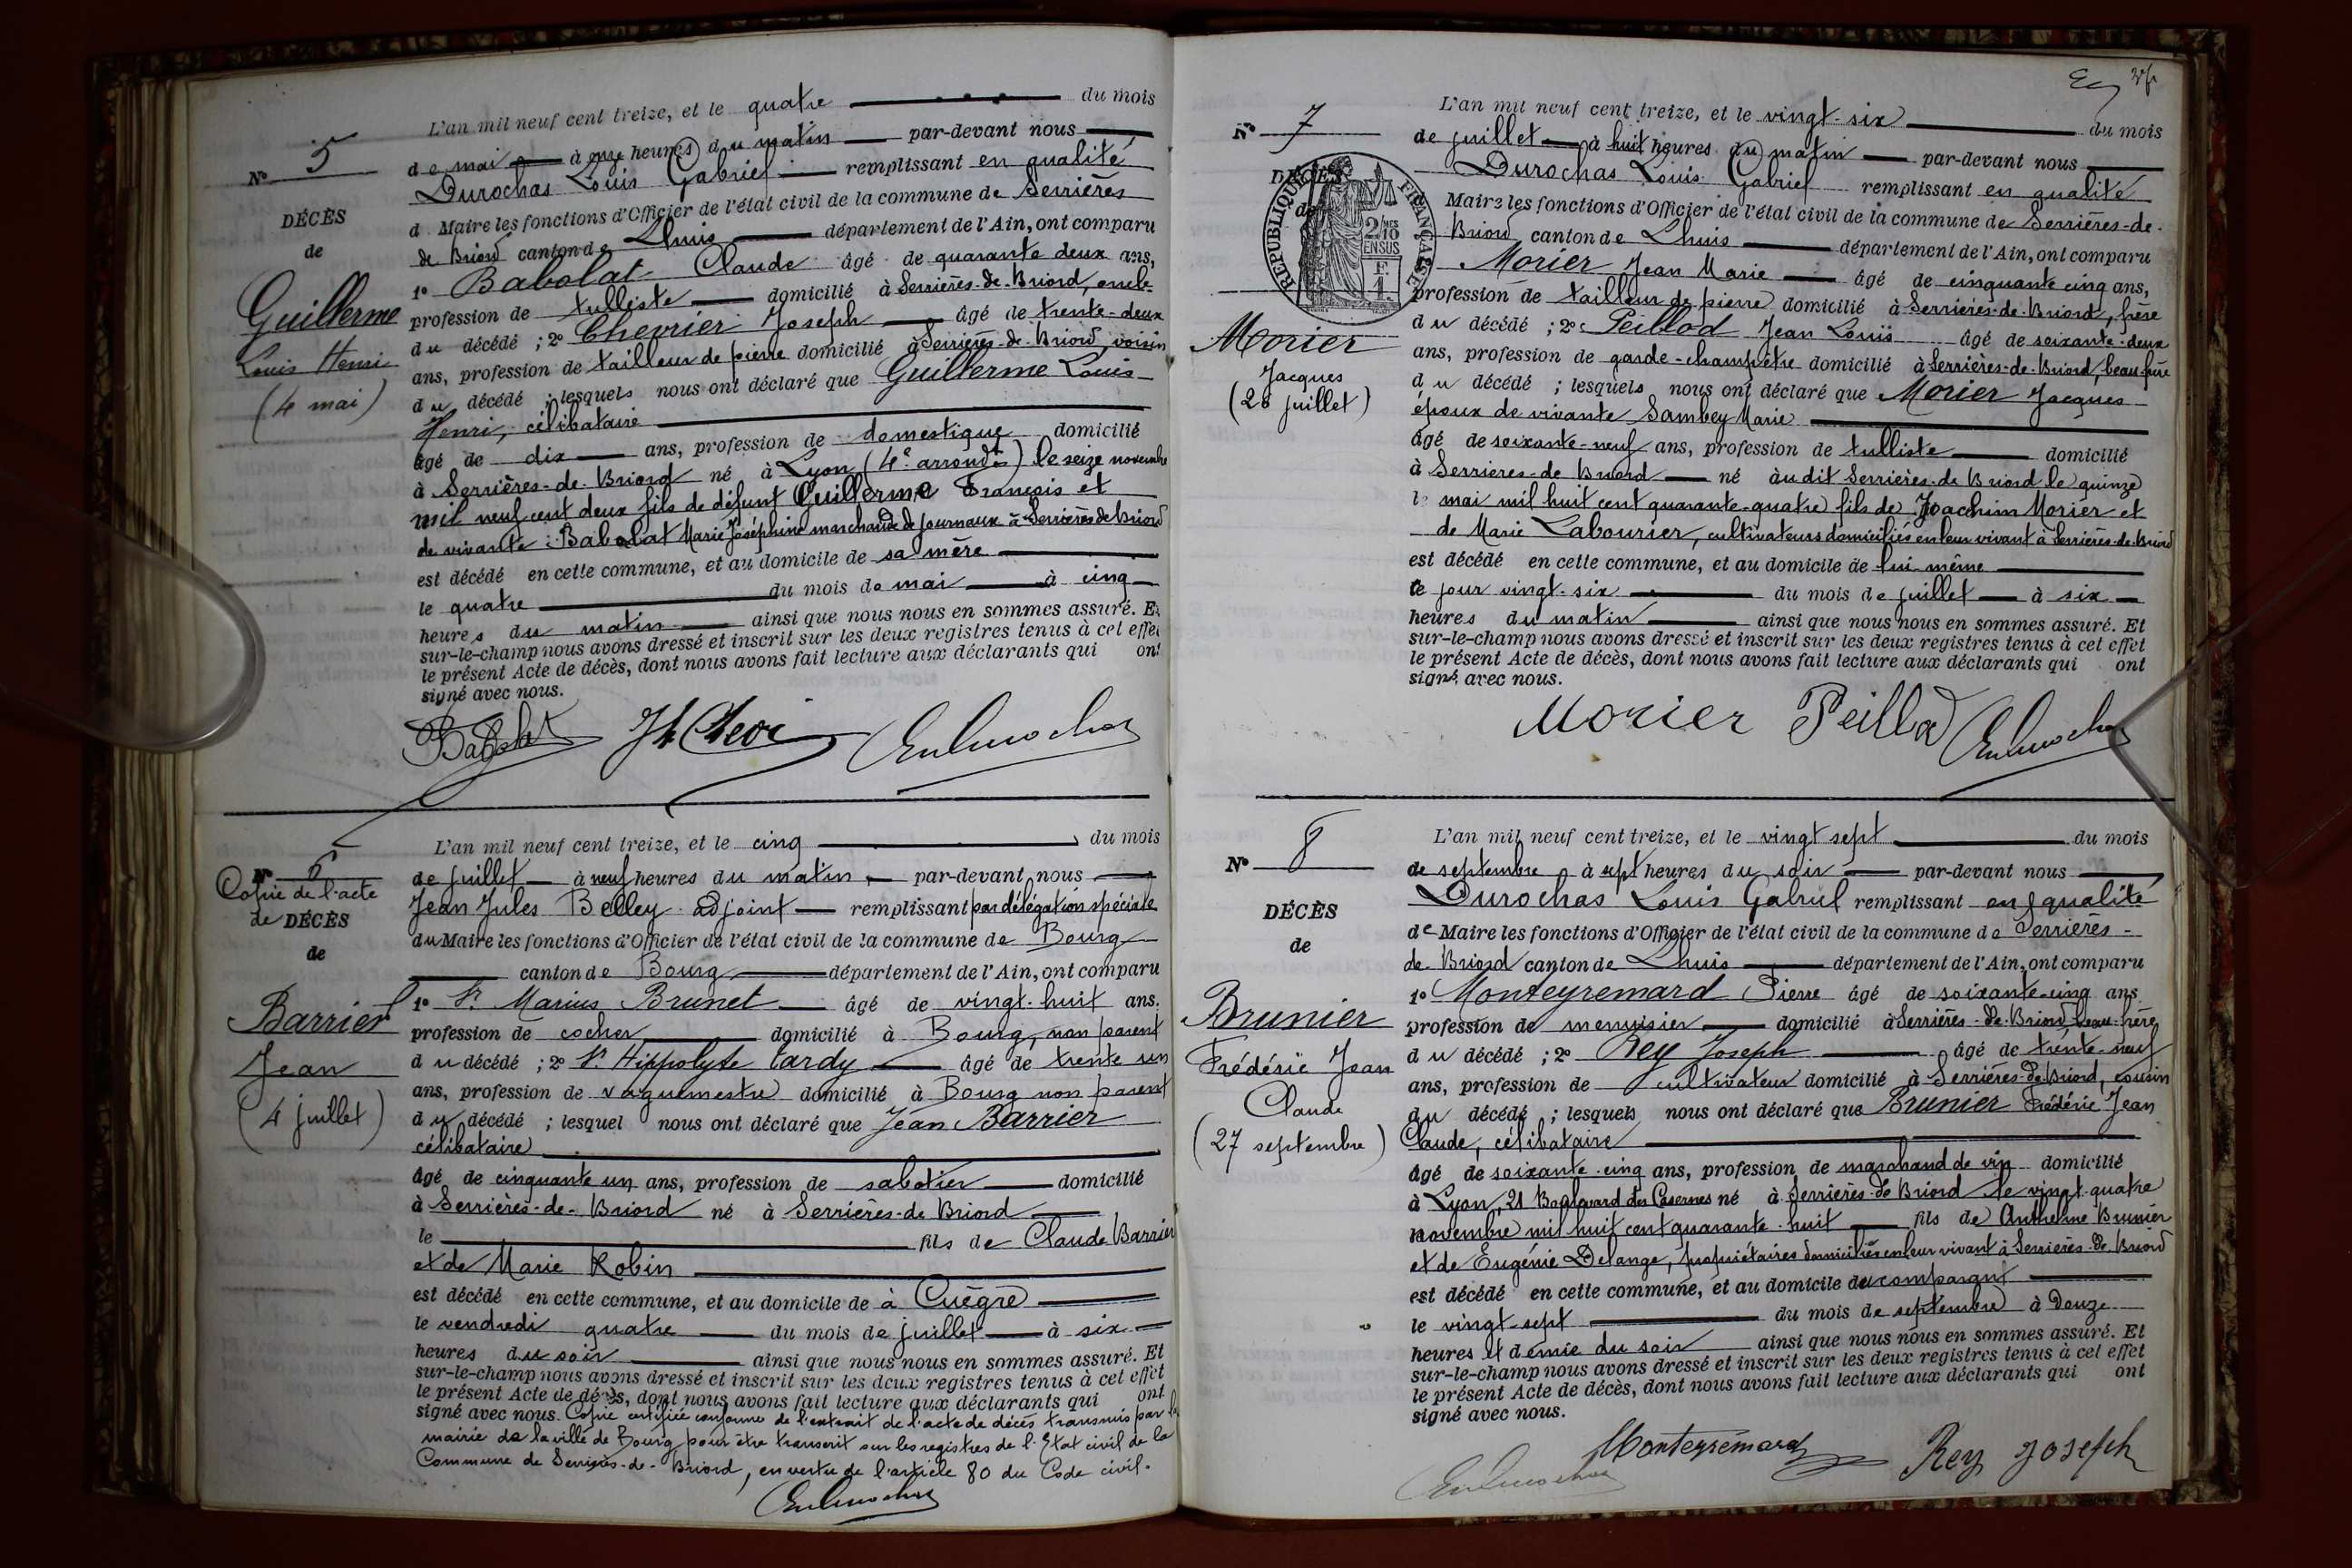 L'an mil neuf cent treize, et le quatre du mois
N° 5
de mai à onze heures du matin par-devant nous
Durochas Louis Gabriel remplissant en qualité
d Maire les fonctions d'Officier de l'état civil de la commune de Serrières
DÉCÈS
de
de Briord canton de Lhuis département de l'Ain, ont comparu
1° Babolat Claude âgé de quarante deux ans,
profession de tulliste domicilié à Serrières-de-Briord, oncle
Guillerme
Louis Henri
(4 mai)
du décédé ; 2° Chevrier Joseph âgé de trente-deux
ans, profession de tailleur de pierre domicilié à Serrières-de-Briord voisin
du décédé ; lesquels nous ont déclaré que Guillerme Louis
Henri, célibataire
âgé de dix ans, profession de domestique domicilié
à Serrières-de-Briord né à Lyon (4e arrondt) le seize novembre
mil neuf cent deux fils de défunt Guillerme François et
de vivante Babolat Marie Joséphine marchande de journaux à Serrières de Briord
est décédé en cette commune, et au domicile de sa mère
le quatre du mois de mai à cinq
heures du matin ainsi que nous nous en sommes assuré. Et
sur-le-champ nous avons dressé et inscrit sur les deux registres tenus à cet effet
le présent Acte de décès, dont nous avons fait lecture aux déclarants qui ont
signé avec nous.
Babolat
L'an mil neuf cent treize, et le cinq du mois
N° 6
Copie de l'acte
de DÉCÈS
de
Barrier
Jean
(4 juillet)
de juillet à neuf heures du matin par-devant nous
Jean Jules Belley adjoint remplissant par délégation spéciale
du Maire les fonctions d'Officier de l'état civil de la commune de Bourg
canton de Bourg département de l'Ain, ont comparu
1° Sr Marius Brunet âgé de vingt-huit ans.
profession de cocher domicilié à Bourg, non parent
du décédé ; 2° Sr Hippolyte Cardy âgé de trente un
ans, profession de vaguemestre domicilié à Bourg non parent
du décédé ; lesquel nous ont déclaré que Jean Barrier
célibataire
âgé de cinquante un ans, profession de sabotier domicilié
à Serrières-de-Briord né à Serrières-de Briord
le fils de Claude Barrier
et de Marie Robin
est décédé en cette commune, et au domicile de à Cuègre
le vendredi quatre du mois de juillet à six
heures du soir ainsi que nous nous en sommes assuré. Et
sur-le-champ nous avons dressé et inscrit sur les deux registres tenus à cet effet
le présent Acte de décès, dont nous avons fait lecture aux déclarants qui ont
signé avec nous. Copie certifiée conforme de l'extrait de l'acte de décès transmis par la
mairie de la ville de Bourg pour être transcrit sur les registres de l'Etat civil de la
Commune de Serrières-de-Briord, en vertu de l'article 80 du Code civil.
L'an mil neuf cent treize, et le vingt-six du mois
N° 7
DÉCÈS
de
RÉPUBLIQUE FRANÇAISE
2/10 EN SUS
F. 1.
Morier
Jacques
(26 juillet)
de juillet à huit heures du matin par-devant nous
Durochas Louis Gabriel remplissant en qualité
d Maire les fonctions d'Officier de l'état civil de la commune de Serrières-de-
Briord canton de Lhuis département de l'Ain, ont comparu
Morier Jean Marie âgé de cinquante cinq ans,
profession de tailleur de pierre domicilié à Serrières-de-Briord, frère
du décédé ; 2° Peillod Jean Louis âgé de soixante-deux
ans, profession de garde-champêtre domicilié à Serrières-de-Briord, beau-frère
du décédé ; lesquels nous ont déclaré que Morier Jacques
époux de vivante Sambey Marie
âgé de soixante-neuf ans, profession de tulliste domicilié
à Serrières-de Briord né audit Serrières-de Briord le quinze
mai mil huit cent quarante-quatre fils de Joachim Morier et
de Marie Labourier, cultivateurs domiciliés en leur vivant à Serrières-de-Briord
est décédé en cette commune, et au domicile de lui-même
le jour vingt-six du mois de juillet à six
heures du matin ainsi que nous nous en sommes assuré. Et
sur-le-champ nous avons dressé et inscrit sur les deux registres tenus à cet effet
le présent Acte de décès, dont nous avons fait lecture aux déclarants qui ont
signé avec nous.
Morier Peillod
L'an mil neuf cent treize, et le vingt sept du mois
N° 8
DÉCÈS
de
Brunier
Frédéric Jean
Claude
(27 septembre)
de septembre à sept heures du soir par-devant nous
Durochas Louis Gabriel remplissant en qualité
de Maire les fonctions d'Officier de l'état civil de la commune de Serrières-
de Briord canton de Lhuis département de l'Ain, ont comparu
1° Monteyremard Pierre âgé de soixante-cinq ans
profession de menuisier domicilié à Serrières-de-Briord, beau-frère
du décédé ; 2° Rey Joseph âgé de trente-neuf
ans, profession de cultivateur domicilié à Serrières-de-Briord, cousin
du décédé ; lesquels nous ont déclaré que Brunier Frédéric Jean
Claude, célibataire
âgé de soixante-cinq ans, profession de marchand de vin domicilié
à Lyon, 21 Boulevard des Casernes né à Serrières-de Briord le vingt-quatre
novembre mil huit cent quarante-huit fils de Anthelme Brunier
et de Eugénie Delange, propriétaires domiciliés en leur vivant à Serrières-de Briord
est décédé en cette commune, et au domicile du comparant
le vingt-sept du mois de septembre à douze
heures et demie du soir ainsi que nous nous en sommes assuré. Et
sur-le-champ nous avons dressé et inscrit sur les deux registres tenus à cet effet
le présent Acte de décès, dont nous avons fait lecture aux déclarants qui ont
signé avec nous.
Monteyremard Rey Joseph